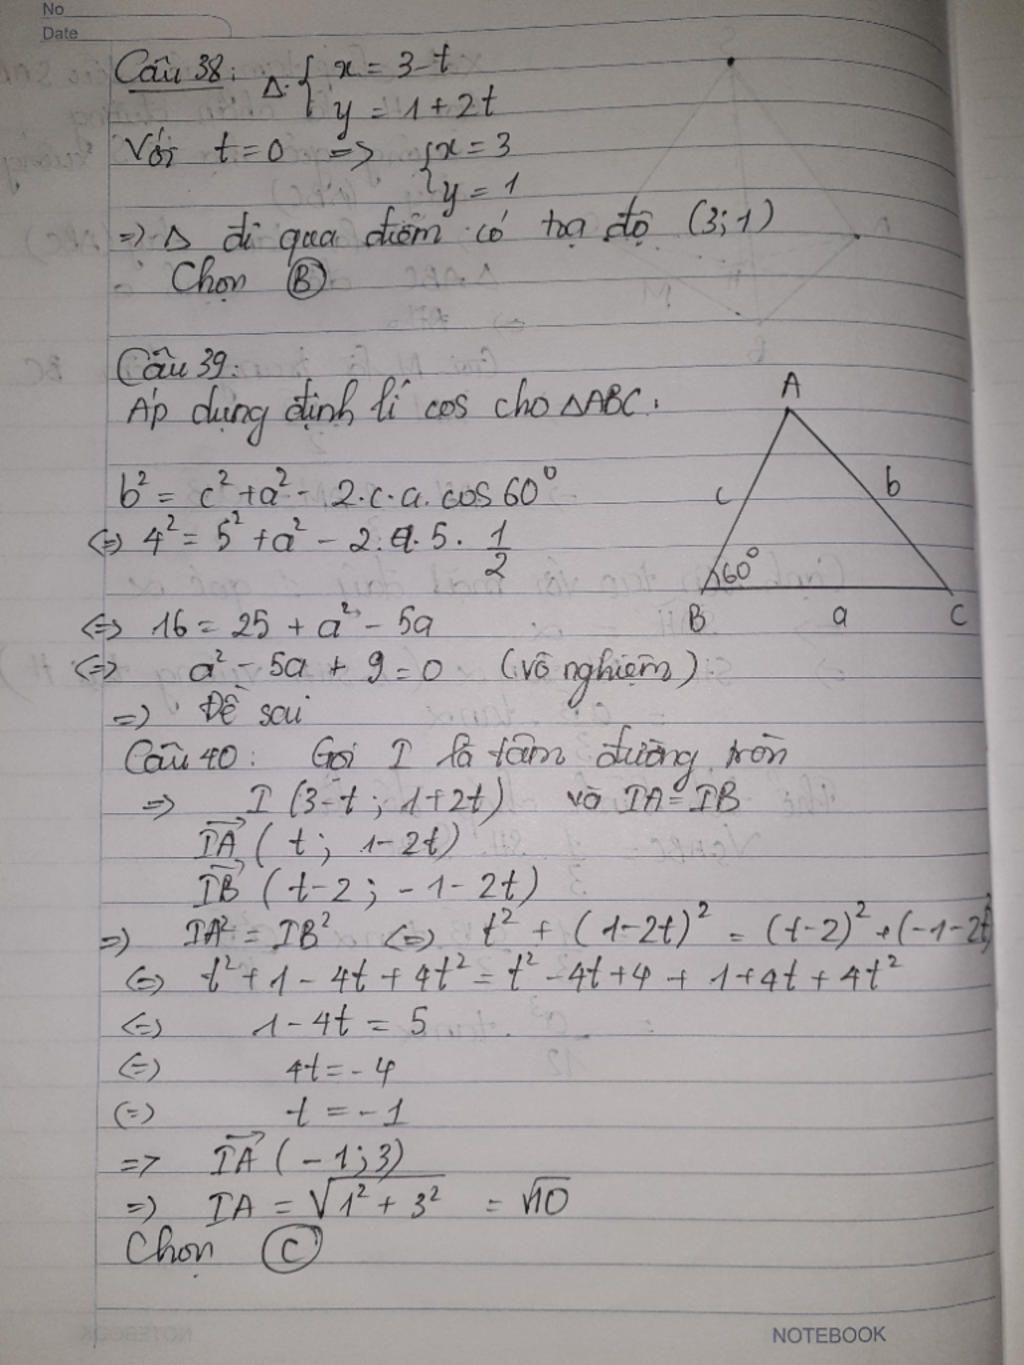 No
Date
Câu 38: Δ: { x = 3-t
y = 1+2t
Với t=0 => { x = 3
y = 1
=> Δ đi qua điểm có toạ độ (3;1)
Chọn B
Câu 39:
Áp dụng định lí cos cho ΔABC:
b² = c² + a² - 2.c.a.cos60°
<=> 4² = 5² + a² - 2.a.5. 1/2
<=> 16 = 25 + a² - 5a
<=> a² - 5a + 9 = 0 (vô nghiệm).
=> Đề sai
A
c
b
60°
B
a
C
Câu 40: Gọi I là tâm đường tròn
=> I (3-t ; 1+2t) và IA = IB
IA→ ( t ; 1-2t)
IB→ ( t-2 ; -1-2t)
=> IA² = IB² <=> t² + (1-2t)² = (t-2)² + (-1-2t)
<=> t² + 1 - 4t + 4t² = t² - 4t + 4 + 1 + 4t + 4t²
<=> 1 - 4t = 5
<=> 4t = -4
<=> t = -1
=> IA→ (-1;3)
=> IA = √(1² + 3²) = √10
Chọn C
NOTEBOOK